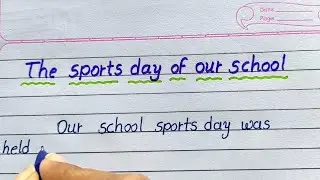 Name:
Page:
The sports day of our school
Our school sports day was
held